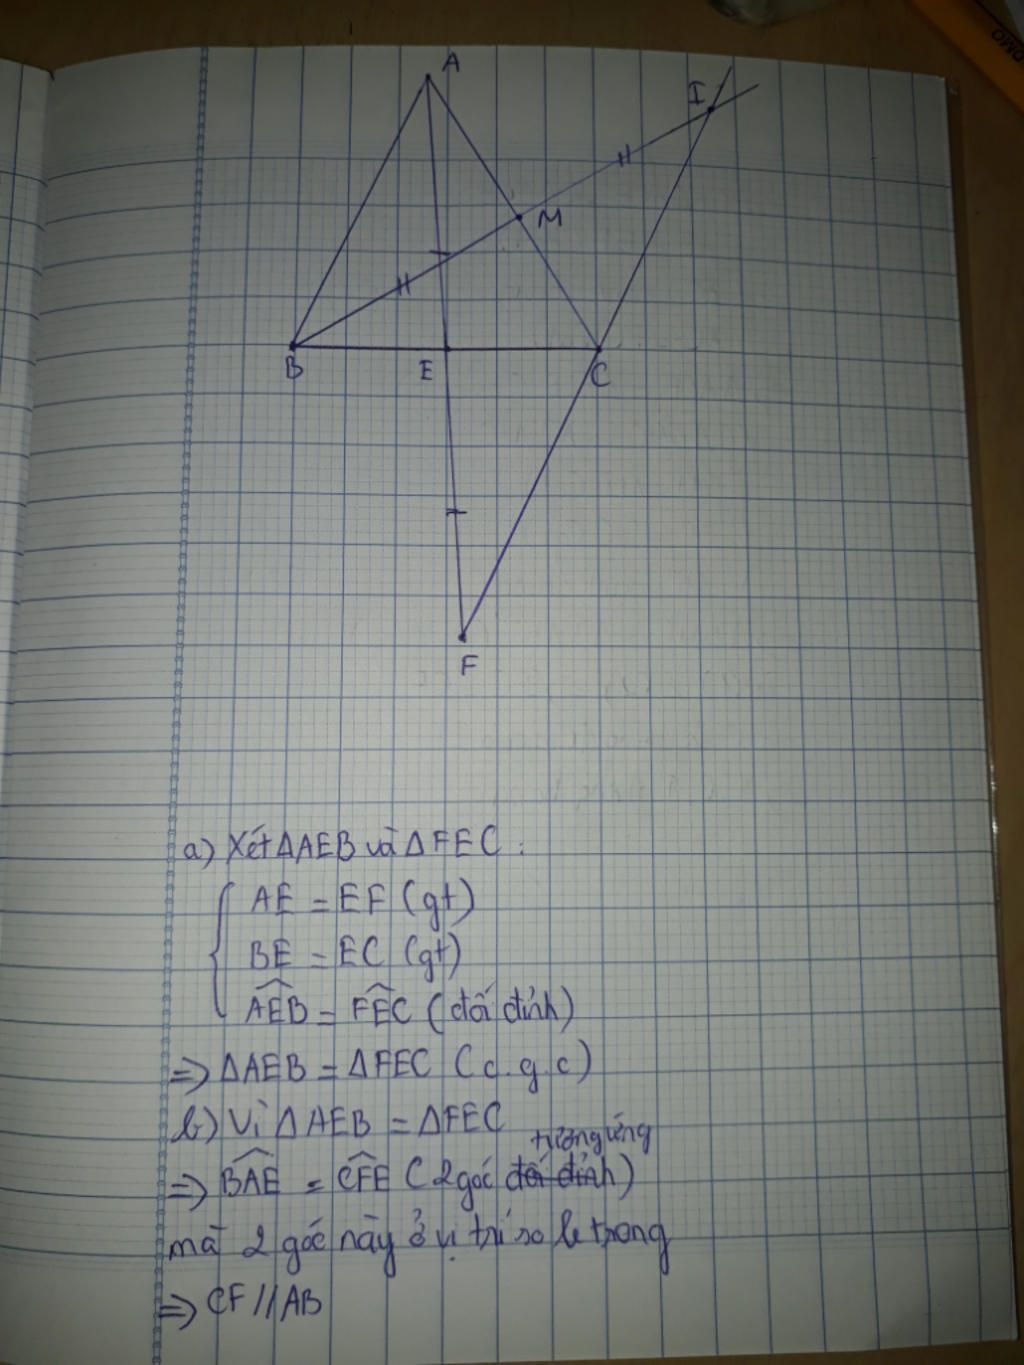 OMO
A
I
M
B
E
C
F
a) Xét ΔAEB và ΔFEC :
AE = EF (gt)
BE = EC (gt)
AEB = FEC (đối đỉnh)
=> ΔAEB = ΔFEC (c.g.c)
b) Vì ΔAEB = ΔFEC
tương ứng
=> BAE = CFE (2 góc đối đỉnh)
mà 2 góc này ở vị trí so le trong
=> CF // AB